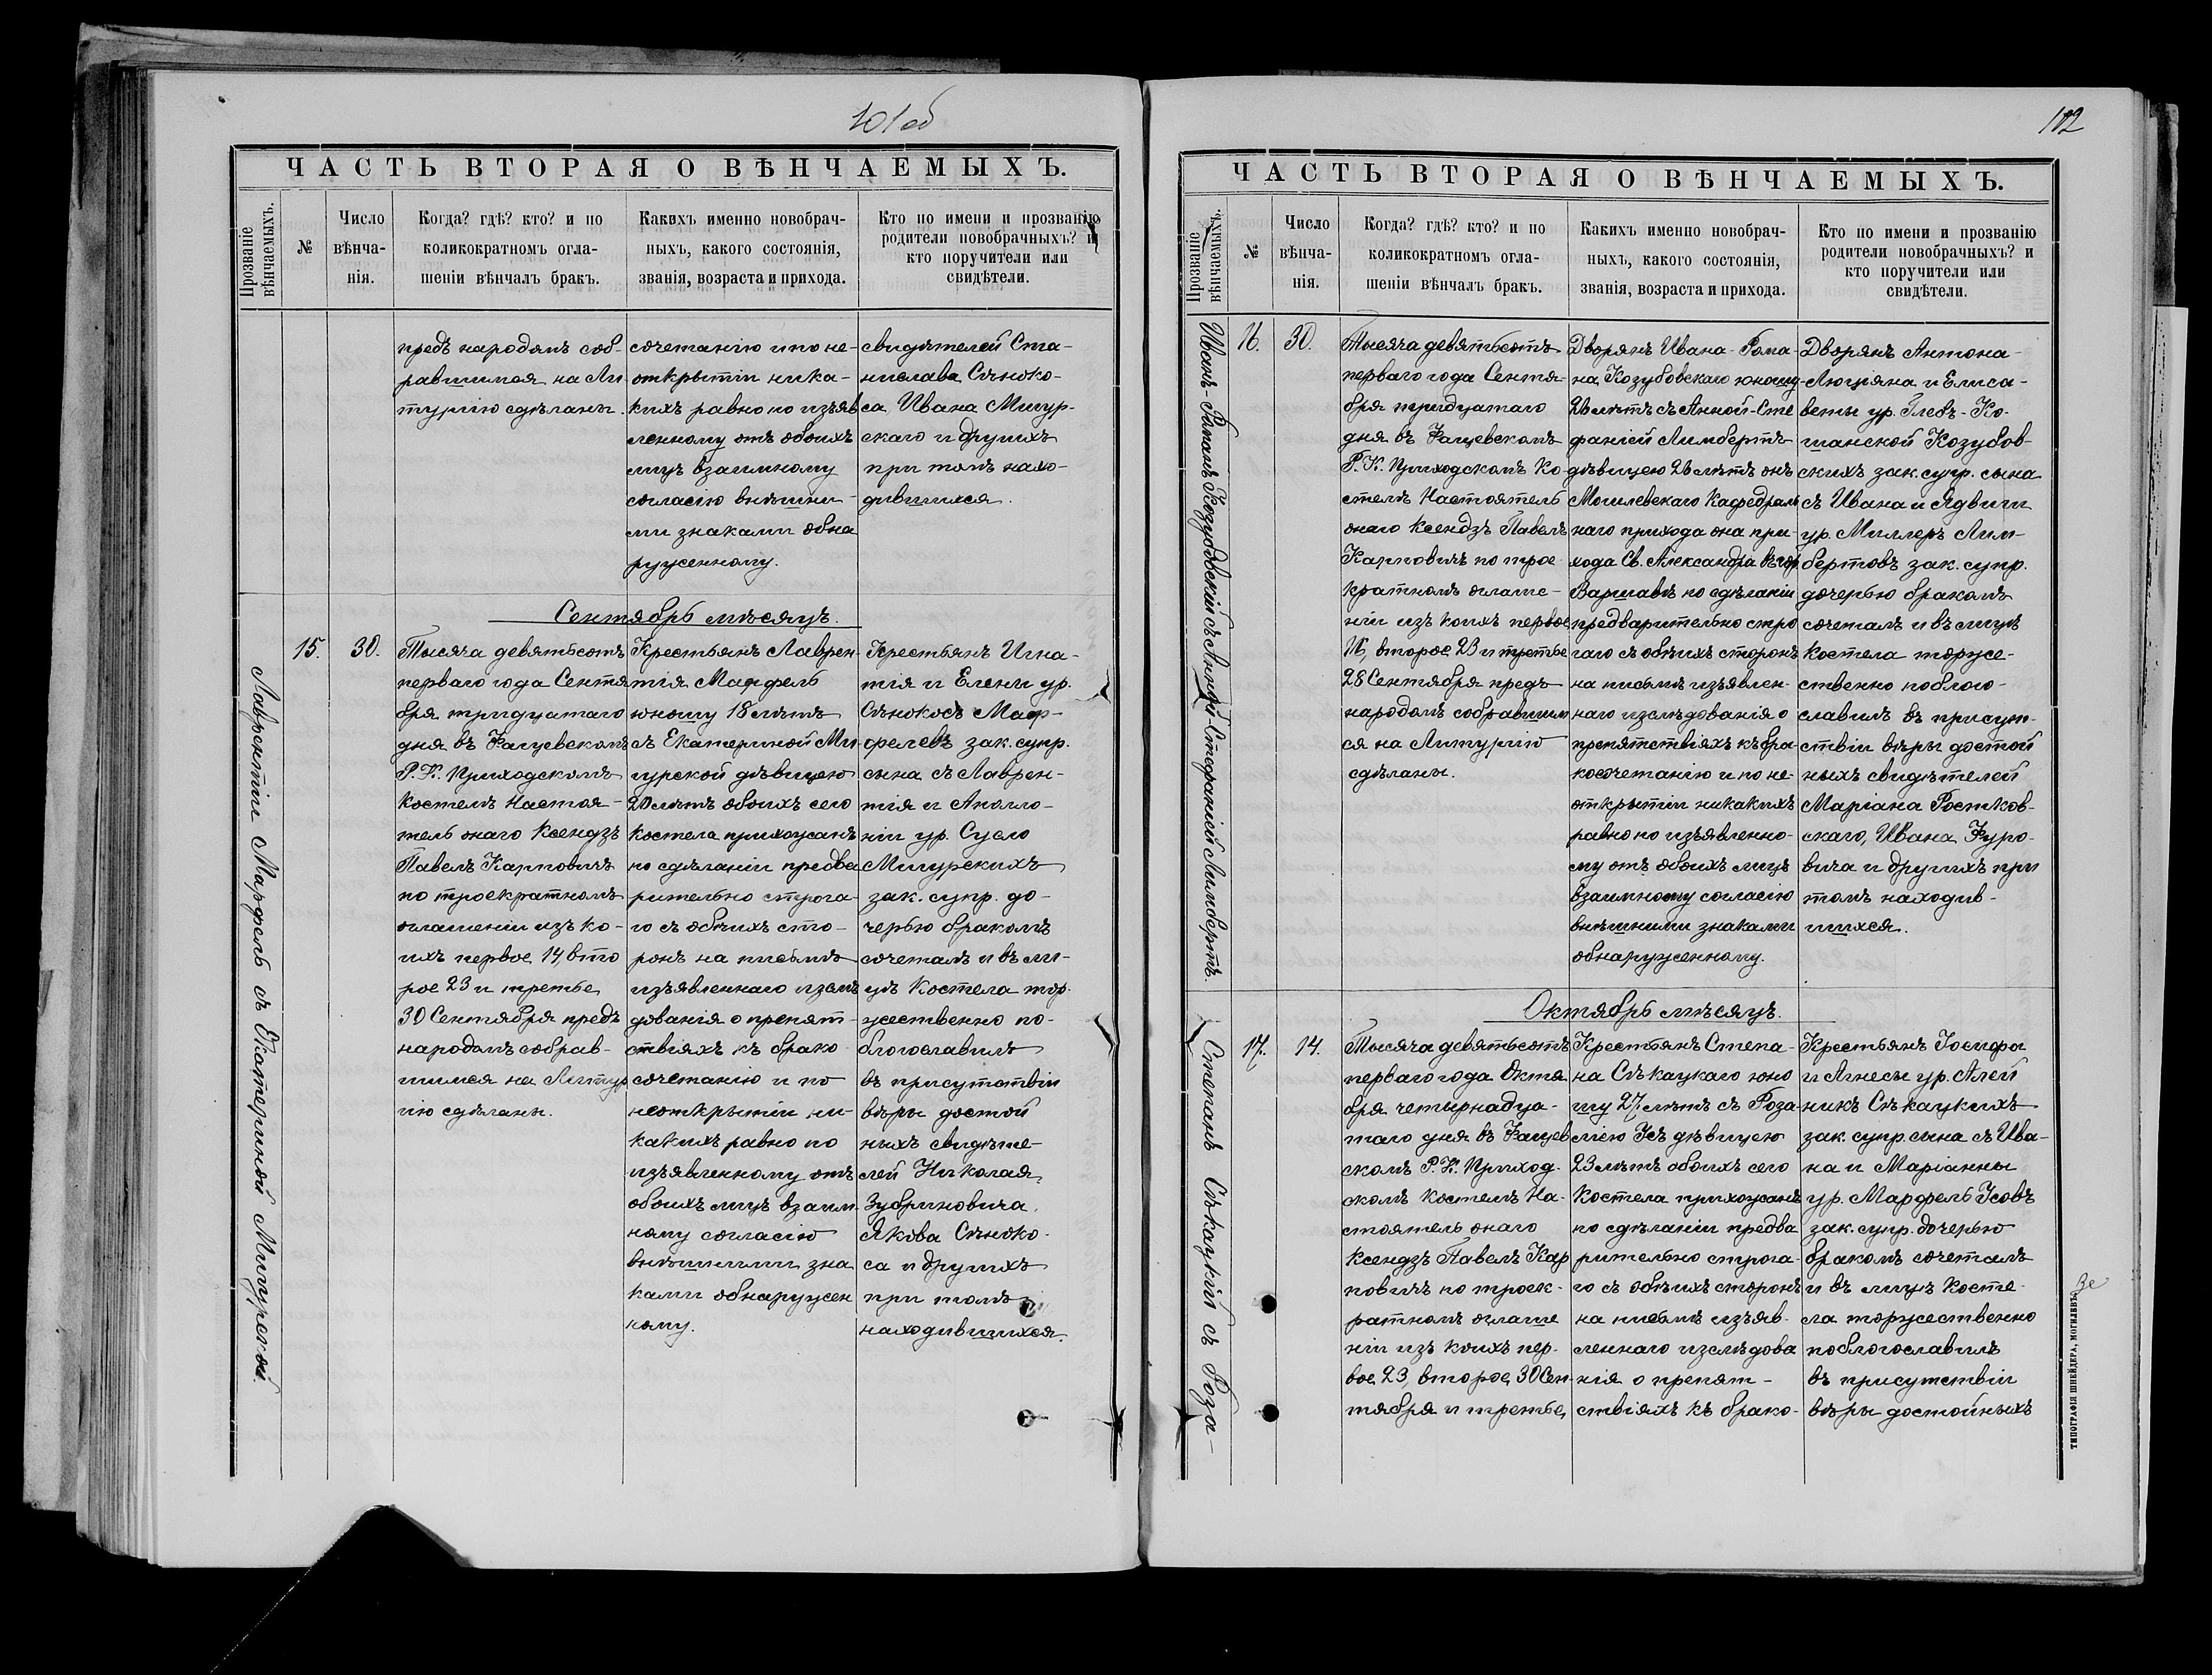 101 об
ЧАСТЬ ВТОРАЯ О ВѢНЧАЕМЫХЪ.
Прозваніе вѣнчаемыхъ.
№
Число вѣнча-
нія.
Когда? гдѣ? кто? и по
коликократномъ огла-
шеніи вѣнчалъ бракъ.
Какихъ именно новобрач-
ныхъ, какого состоянія,
званія, возраста и прихода.
Кто по имени и прозванію
родители новобрачныхъ? и
кто поручители или
свидѣтели.
предъ народомъ соб-
равшимся на Ли-
тургію сдѣланы.
сочетанію и по не-
открытіи ника-
кихъ равно по изъяв
ленному отъ обоихъ
лицъ взаимному
согласію внѣшни-
ми знаками обна
руженному.
свидѣтелей Ста-
нислава Сѣноко-
са Ивана Мигур-
скаго и другихъ
при томъ нахо-
дившихся.
Сентябрь мѣсяцъ.
Лаврентій Марфель съ Екатериной Мигурской.
15.
30.
Тысяча девятьсотъ
перваго года Сентя
бря тридцатаго
дня въ Фащевскомъ
Р. К. Приходскомъ
Костелѣ Настоя-
тель онаго Ксендзъ
Павелъ Карповичъ
по троекратномъ
оглашеніи изъ ко-
ихъ первое 14, вто
рое 23 и третье
30 Сентября предъ
народомъ собрав-
шимся на Литур
гію сдѣланы.
Крестьянъ Лаврен-
тія Марфель
юношу 18 лѣтъ
съ Екатериной Ми-
гурской дѣвицею
20 лѣтъ обоихъ сего
Костела прихожанъ
по сдѣланіи предва
рительно строга-
го съ обѣихъ сто-
ронъ на письмѣ
изъявленнаго изслѣ
дованія о препят-
ствіяхъ къ брако
сочетанію и по
неоткрытіи ни-
какихъ равно по
изъявленному отъ
обоихъ лицъ взаим
ному согласію
внѣшними зна
ками обнаружен
ному.
Крестьянъ Игна-
тія и Елены ур.
Сѣнокосъ Мар-
фелевъ зак. супр.
сына съ Лаврен-
тія и Аполло-
ніи ур. Сусло
Мигурскихъ
зак. супр. до-
черью бракомъ
сочеталъ и въ ли-
цѣ Костела тор-
жественно по-
благославилъ
въ присутствіи
вѣры достой
ныхъ свидѣте-
лей Николая
Зубриновича,
Якова Сѣноко-
са и другихъ
при томъ
находившихся.
102
ЧАСТЬ ВТОРАЯ О ВѢНЧАЕМЫХЪ.
Прозваніе вѣнчаемыхъ.
№
Число вѣнча-
нія.
Когда? гдѣ? кто? и по
коликократномъ огла-
шеніи вѣнчалъ бракъ.
Какихъ именно новобрач-
ныхъ, какого состоянія,
званія, возраста и прихода.
Кто по имени и прозванію
родители новобрачныхъ? и
кто поручители или
свидѣтели.
Иванъ-Романъ Козубовскій съ Анной-Стефаніей Лимбертъ.
16.
30.
Тысяча девятьсотъ
перваго года Сентя-
бря тридцатаго
дня въ Фащевскомъ
Р. К. Приходскомъ Ко-
стелѣ Настоятель
онаго Ксендзъ Павелъ
Карповичъ по трое-
кратномъ оглаше-
ніи изъ коихъ первое
16, второе 23 и третье
28 Сентября предъ
народомъ собравшим
ся на Литургію
сдѣланы.
Дворянъ Ивана-Рома-
на Козубовскаго юношу
26 лѣтъ съ Анной-Сте
фаніей Лимбертъ
дѣвицею 26 лѣтъ онъ
Могилевскаго Кафедраль
наго прихода она при-
хода Св. Александра въ гор.
Варшавѣ по сдѣланіи
предварительно стро
гаго съ обѣихъ сторонъ
на письмѣ изъявлен-
наго изслѣдованія о
препятствіяхъ къ бра-
косочетанію и по не-
открытіи никакихъ
равно по изъявленно-
му отъ обоихъ лицъ
взаимному согласію
внѣшними знаками
обнаруженному.
Дворянъ Антона-
Люціяна и Елиса-
веты ур. Глебъ-Ко-
шанской Козубов-
скихъ зак. супр. сына
съ Ивана и Ядвиги
ур. Миллеръ Лим-
бертовъ зак. супр.
дочерью бракомъ
сочеталъ и въ лицѣ
Костела торже-
ственно поблаго-
славилъ въ присут-
ствіи вѣры достой
ныхъ свидѣтелей
Маріана Ростков-
скаго, Ивана Фуро-
вича и другихъ при
томъ находив-
шихся.
Октябрь мѣсяцъ.
Степанъ Сѣкацкій съ Роза-
17.
14.
Тысяча девятьсотъ
перваго года Октя
бря четырнадца-
таго дня въ Фащев
скомъ Р. К. Приход-
скомъ Костелѣ На-
стоятель онаго
Ксендзъ Павелъ Кар
повичъ по троек-
ратномъ оглаше
ніи изъ коихъ пер-
вое 23, второе 30 Сен-
тября и третье
Крестьянъ Степа-
на Сѣкацкаго юно
шу 27 лѣтъ съ Роза-
ліею Усъ дѣвицею
23 лѣтъ обоихъ сего
Костела прихожанъ
по сдѣланіи предва
рительно строга-
го съ обѣихъ сторонъ
на письмѣ изъяв-
леннаго изслѣдова
нія о препят-
ствіяхъ къ брако-
Крестьянъ Іосифа
и Агнесы ур. Алей
никъ Сѣкацкихъ
зак. супр. сына съ Ива-
на и Маріанны
ур. Марфель Усовъ
зак. супр. дочерью
бракомъ сочеталъ
и въ лицѣ Косте-
ла торжественно
поблагославилъ
въ присутствіи
вѣры достойныхъ
ТИПОГРАФІЯ ШНЕЙДЕРА, МОГИЛЕВЪ